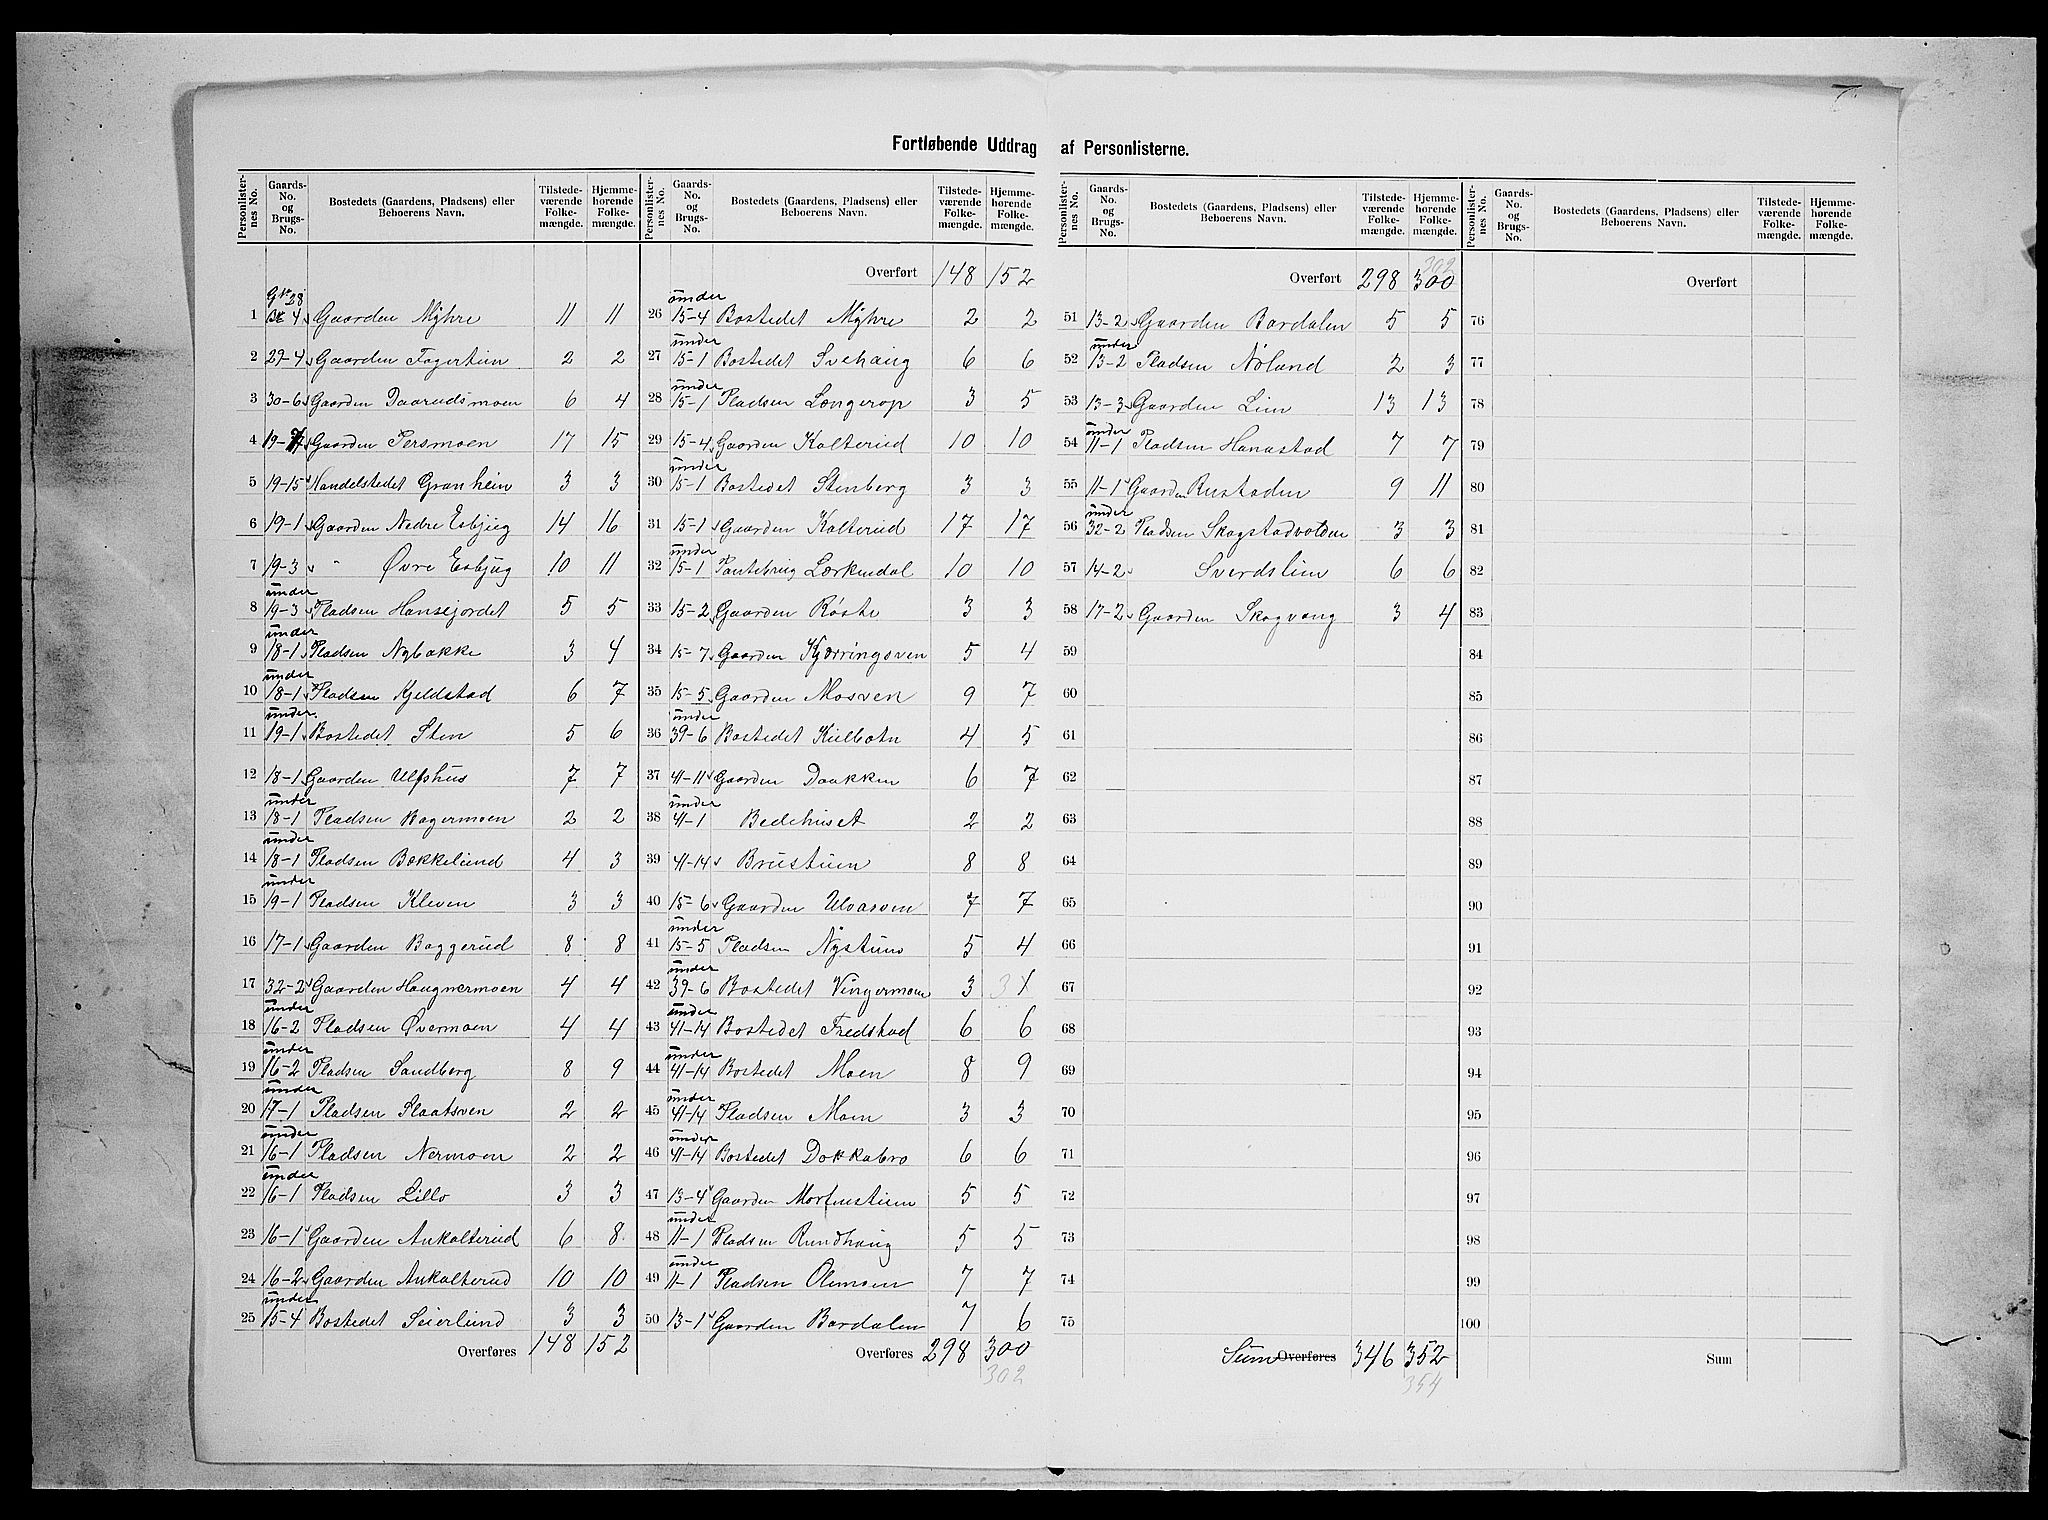 7.
Fortløbende Uddrag af Personlisterne.
Personlister-nes No. | Gaards-No. og Brugs-No. | Bostedets (Gaardens, Pladsens) eller Beboerens Navn. | Tilstede-værende Folke-mængde. | Hjemme-hørende Folke-mængde.
G.No 28
1 | Br 4 | Gaarden Myhre | 11 | 11
2 | 29-4 | Gaarden Fagertun | 2 | 2
3 | 30-6 | Gaarden Daarudsmoen | 6 | 4
4 | 19-7 | Gaarden Persmoen | 17 | 15
5 | 19-15 | Handelstedet Granheim | 3 | 3
6 | 19-1 | Gaarden Nedre Esbjug | 14 | 16
7 | 19-3 | " Øvre Esbjug | 10 | 11
8 | under 19-3 | Pladsen Hansejordet | 5 | 5
9 | under 18-1 | Pladsen Nybakke | 3 | 4
10 | under 18-1 | Pladsen Kjeldstad | 6 | 7
11 | under 19-1 | Bostedet Sten | 5 | 6
12 | 18-1 | Gaarden Ulfshus | 7 | 7
13 | under 18-1 | Pladsen Bagermoen | 2 | 2
14 | under 18-1 | Pladsen Bakkelund | 4 | 3
15 | under 19-1 | Pladsen Kleven | 3 | 3
16 | 17-1 | Gaarden Baggerud | 8 | 8
17 | 32-2 | Gaarden Haugnermoen | 4 | 4
18 | under 16-2 | Pladsen Øvermoen | 4 | 4
19 | under 16-2 | Pladsen Sandberg | 8 | 9
20 | under 17-1 | Pladsen Slaatsven | 2 | 2
21 | under 16-1 | Pladsen Nermoen | 2 | 2
22 | under 16-1 | Pladsen Lillo | 3 | 3
23 | 16-1 | Gaarden Aukalterud | 6 | 8
24 | 16-2 | Gaarden Aukalterud | 10 | 10
25 | under 15-4 | Bostedet Seierlund | 3 | 3
Overføres | 148 | 152
Personlister-nes No. | Gaards-No. og Brugs-No. | Bostedets (Gaardens, Pladsens) eller Beboerens Navn. | Tilstede-værende Folke-mængde. | Hjemme-hørende Folke-mængde.
Overført | 148 | 152
26 | under 15-4 | Bostedet Myhre | 2 | 2
27 | under 15-1 | Bostedet Svehaug | 6 | 6
28 | under 15-1 | Pladsen Længerop | 3 | 5
29 | 15-4 | Gaarden Kalterud | 10 | 10
30 | under 15-1 | Bostedet Stenberg | 3 | 3
31 | 15-1 | Gaarden Kalterud | 17 | 17
32 | under 15-1 | Pantebrug Lærkendal | 10 | 10
33 | 15-2 | Gaarden Røste | 3 | 3
34 | 15-7 | Gaarden Kjærringsven | 5 | 4
35 | 15-5 | Gaarden Mosven | 9 | 7
36 | under 39-6 | Bostedet Kulbotn | 4 | 5
37 | 41-11 | Gaarden Daakken | 6 | 7
38 | under 41-1 | Bedehuset | 2 | 2
39 | 41-14 | Brustuen | 8 | 8
40 | 15-6 | Gaarden Ulvasven | 7 | 7
41 | under 15-5 | Pladsen Nystuno | 5 | 4
42 | under 39-6 | Bostedet Vingermoen | 3 | 3 1
43 | under 41-14 | Bostedet Fredstad | 6 | 6
44 | under 41-14 | Bostedet Moen | 8 | 9
45 | under 41-14 | Pladsen Moen | 3 | 3
46 | under 41-14 | Bostedet Dokkabro | 6 | 6
47 | 13-4 | Gaarden Mortenstuen | 5 | 5
48 | under 11-1 | Pladsen Rundhaug | 5 | 5
49 | under 11-1 | Pladsen Olemoen | 7 | 7
50 | 13-1 | Gaarden Bardalen | 7 | 6
Overføres | 298 | 300
302
Personlister-nes No. | Gaards-No. og Brugs-No. | Bostedets (Gaardens, Pladsens) eller Beboerens Navn. | Tilstede-værende Folke-mængde. | Hjemme-hørende Folke-mængde.
302
Overført | 298 | 300
51 | 13-2 | Gaarden Bardalen | 5 | 5
52 | under 13-2 | Pladsen Nøland | 2 | 3
53 | 13-3 | Gaarden Lim | 13 | 13
54 | under 11-1 | Pladsen Hanastad | 7 | 7
55 | 11-1 | Gaarden Rustaden | 9 | 11
56 | under 32-2 | Pladsen Skogstadvolden | 3 | 3
57 | 14-2 | Sverdslien | 6 | 6
58 | 17-2 | Gaarden Skogvang | 3 | 4
59
60
61
62
63
64
65
66
67
68
69
70
71
72
73
74
75
Sum Overføres | 346 | 352
354
Personlister-nes No. | Gaards-No. og Brugs-No. | Bostedets (Gaardens, Pladsens) eller Beboerens Navn. | Tilstede-værende Folke-mængde. | Hjemme-hørende Folke-mængde.
Overført
76
77
78
79
80
81
82
83
84
85
86
87
88
89
90
91
92
93
94
95
96
97
98
99
100
Sum